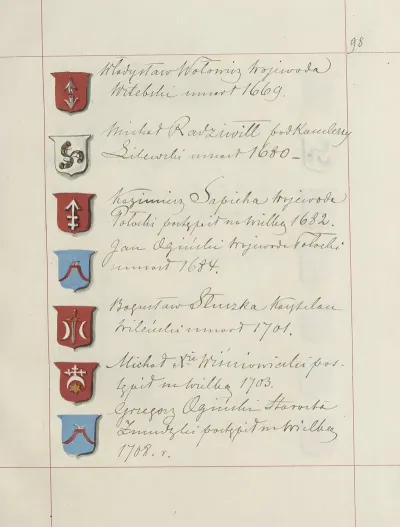 98
Władysław Wołowicz Wojewoda
Witebski umarł 1669.
Michał Radziwiłł podKanclerzy
Litewski umarł 1680 –
Kazimierz Sapieha Wojewoda
Połocki postąpił na Wielką 1682.
Jan Ogiński Wojewoda Połocki
umarł 1684.
Bogusław Słuszka Kasztelan
Wileński umarł 1701.
Michał Wiśniowiecki pos-
tąpił na Wielką 1703.
Grzegorz Ogiński Starosta
Żmudzki postąpił na Wielką
1708. r.